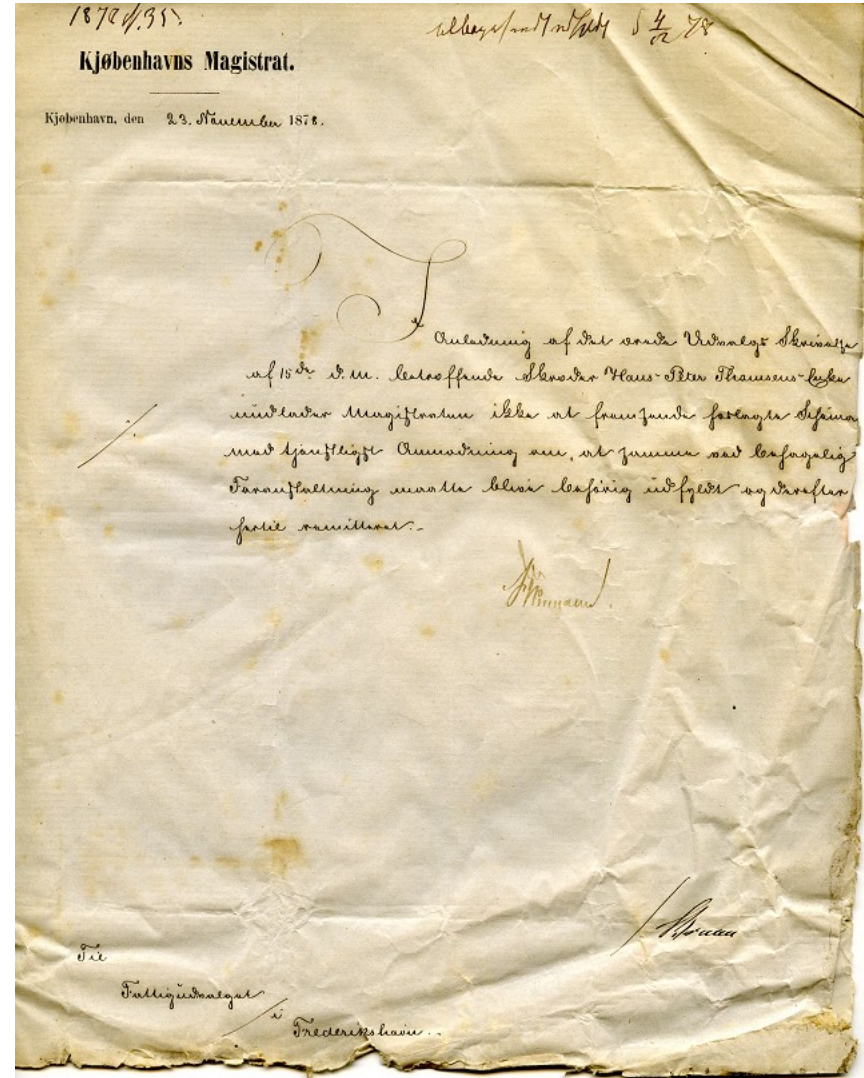 1878
tilbagesendt udfyldt d 4/12 78
Kjøbenhavns Magistrat.
Kjøbenhavn, den 23. November 1878.
I
Anledning af det ærede Udvalgs Skrivelse
af 15de d.M. betræffende Skræder Hans Peter Thomsens
undlader Magistraten ikke at fremsende forlagte Schema
med tjenstligst Anmodning om, at samme ved behagelig
Foranstaltning maatte blive behørig udfyldt og derefter
hertil remitteret.-
Til
Fattigudvalget
i
Frederikshavn.